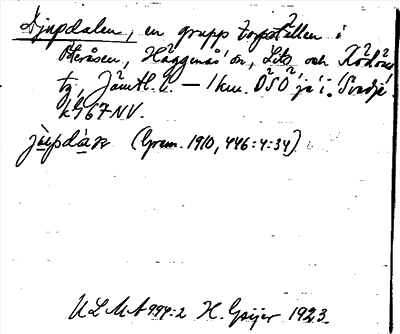 Djupdalen, en grupp torpställen i
Österåsen, Häggenås sn, Lits och Rödöns
tg, Jämtl. l. — 1 km. OSO
k 967 NV.
jùpdàɳ (Grem. 1910, 446:4:34)
ULMA 994:2 H. Geijer 1923